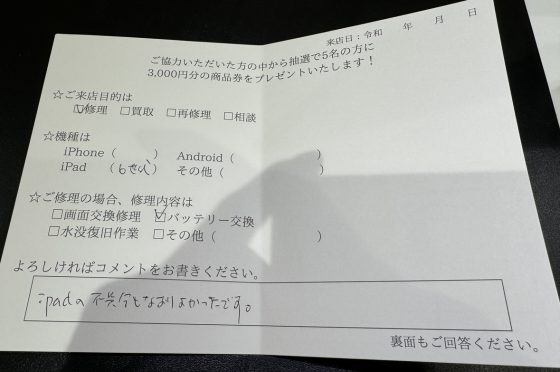 来店日：令和　　年　　月　　日
ご協力いただいた方の中から抽選で5名の方に
3,000円分の商品券をプレゼントいたします！
☆ご来店目的は
☑修理　□買取　□再修理　□相談
☆機種は
iPhone（　　　）　Android（　　　　　　）
iPad　（6せだい）　その他（　　　　　　　）
☆ご修理の場合、修理内容は
□画面交換修理　☑バッテリー交換
□水没復旧作業　□その他（　　　　　　　）
よろしければコメントをお書きください。
ipadの不具合もなおりよかったです。
裏面もご回答ください。